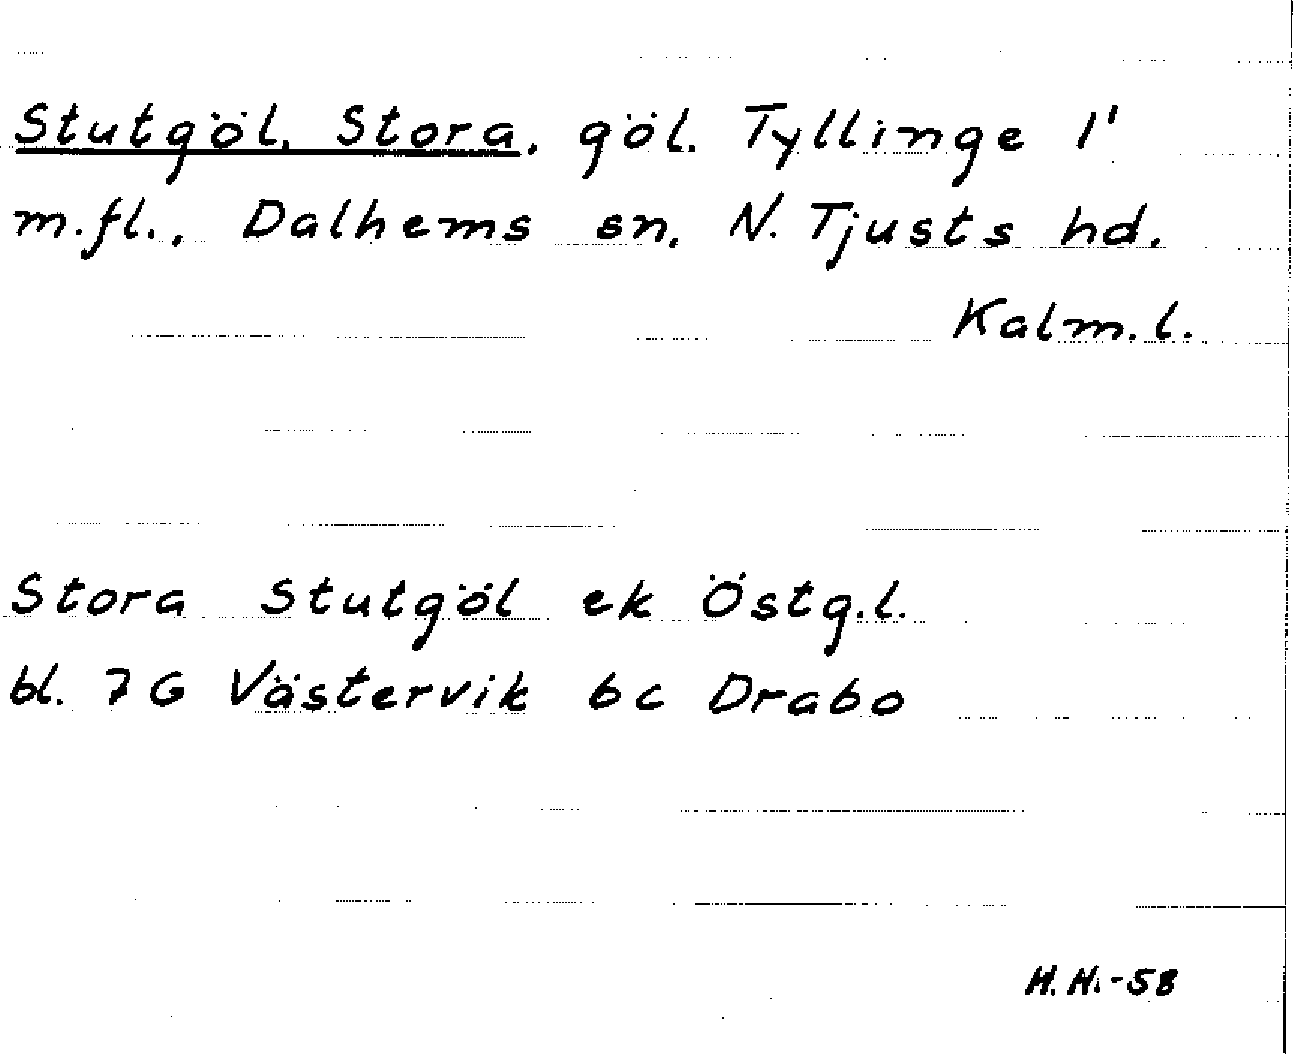 Stutgöl, Stora, göl. Tyllinge 1'
m.fl., Dalhems sn, N. Tjusts hd.
Kalm.l.
Stora Stutgöl ek Östg.l.
bl. 7G Västervik bc Drabo
H.H.-58